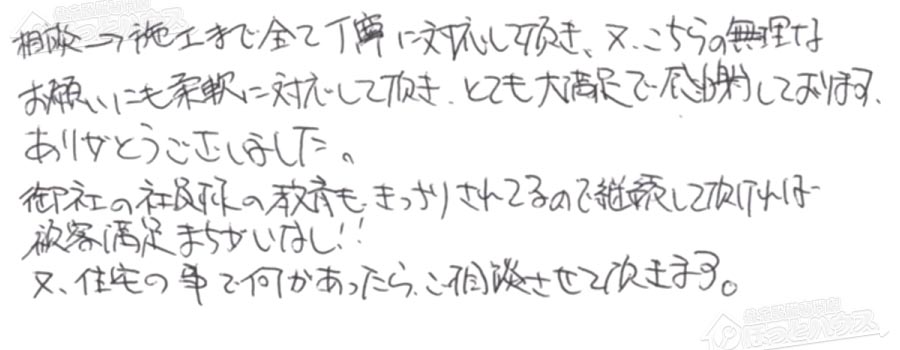 相談→施工まで全て丁寧に対応して頂き、又、こちらの無理な
お願いにも柔軟に対応して頂き、とても大満足で感謝しております、
ありがとうございました。
御社の社員様の教育も、きっちりされてるので継続して頂ければ
顧客満足まちがいなし!!
又、住宅の事で何かあったら、ご相談させて頂きます。
ほっとハウス